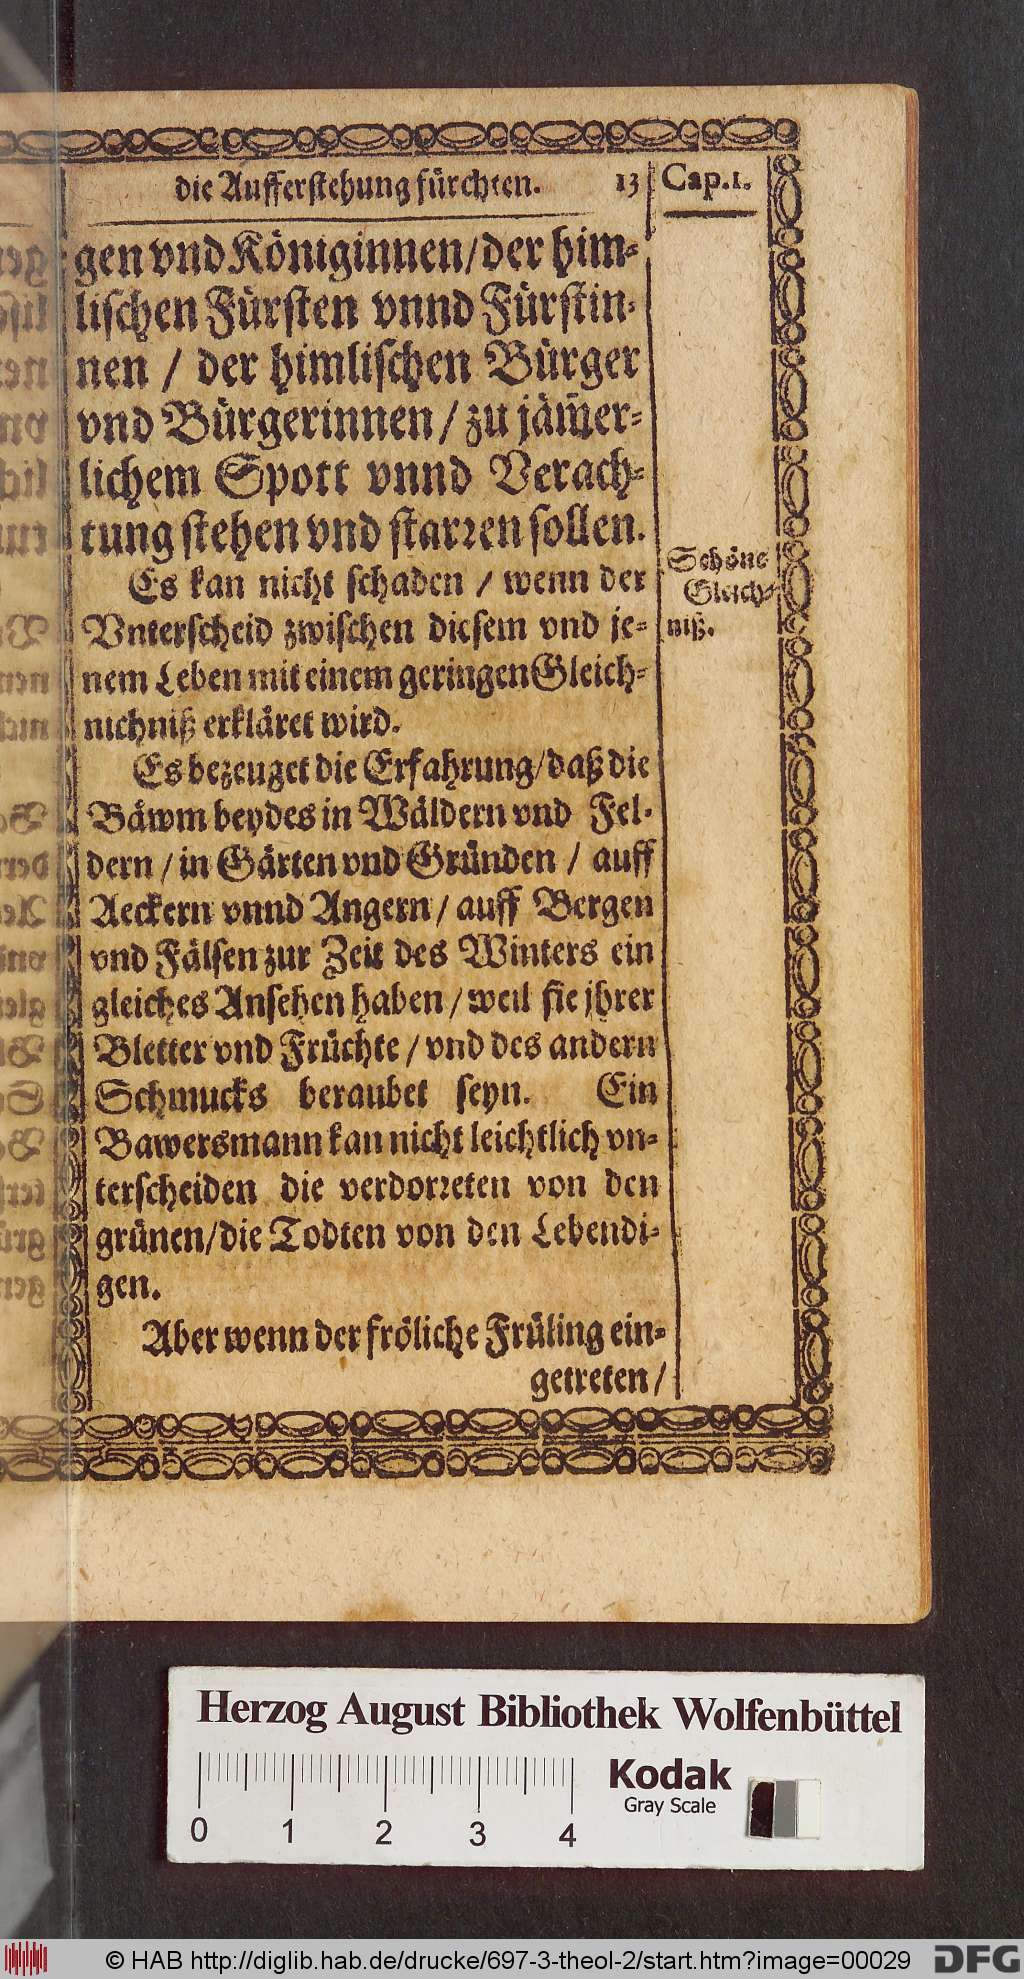 die Aufferstehung fürchten. 13 Cap.1.
gen vnd Königinnen/der him-
lischen Fürsten vnnd Fürstin-
nen / der himlischen Bürger
vnd Bürgerinnen / zu jäm̃er-
lichem Spott vnnd Verach-
tung stehen vnd starren sollen.
Es kan nicht schaden / wenn der
Vnterscheid zwischen diesem vnd je-
nem Leben mit einem geringen Gleich-
nichniß erkläret wird.
Schöne
Gleich-
niß.
Es bezeuget die Erfahrung/daß die
Bäwm beydes in Wäldern vnd Fel-
dern / in Gärten vnd Gründen / auff
Aeckern vnnd Angern / auff Bergen
vnd Fälsen zur Zeit des Winters ein
gleiches Ansehen haben / weil sie jhrer
Bletter vnd Früchte / vnd des andern
Schmucks beraubet seyn. Ein
Bawersmann kan nicht leichtlich vn-
terscheiden die verdorreten von den
grünen/die Todten von den Lebendi-
gen.
Aber wenn der fröliche Früling ein-
getreten /
Herzog August Bibliothek Wolfenbüttel
0 1 2 3 4
Kodak
Gray Scale
© HAB http://diglib.hab.de/drucke/697-3-theol-2/start.htm?image=00029
DFG